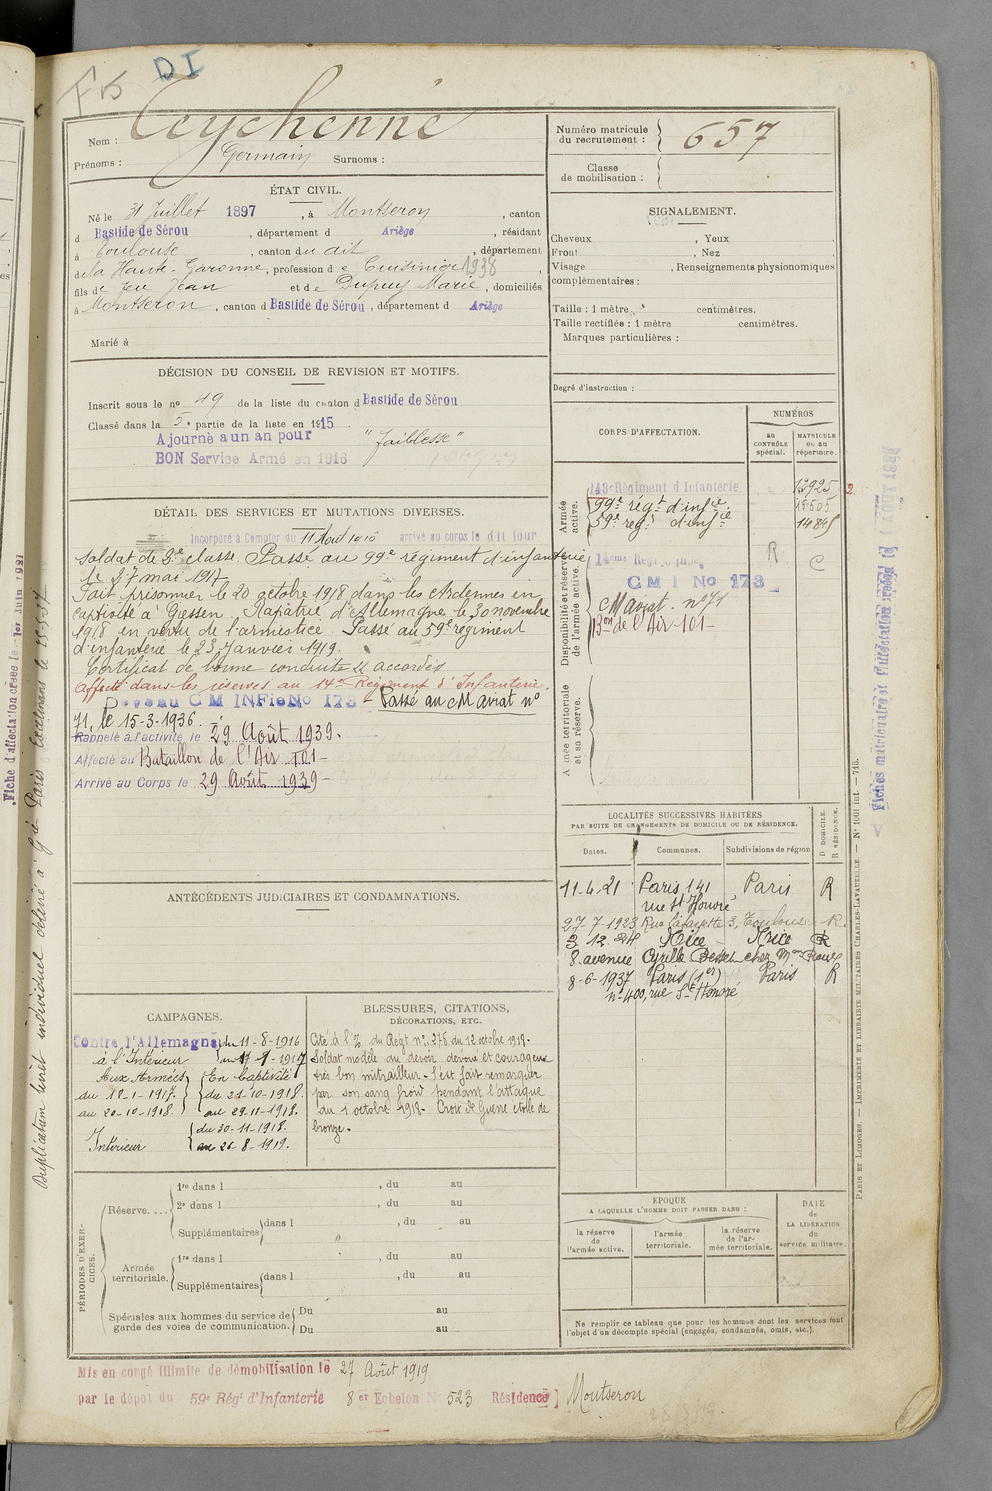 DI
Nom : Teychenné
Prénoms : Germain Surnoms :
Numéro matricule
du recrutement : 657
Classe
de mobilisation :
ÉTAT CIVIL.
Né le 31 Juillet 1897, à Montseron, canton
d Bastide de Sérou, département d Ariège, résidant
à Toulouse, canton du dit, département
de la Haute-Garonne, profession de Cuisinier 1938,
fils de feu Jean et de Dupuy Marie, domiciliés
à Montseron, canton d Bastide de Sérou, département d Ariège
Marié à
SIGNALEMENT.
Cheveux , Yeux ,
Front , Nez
Visage , Renseignements physionomiques
complémentaires :
Taille : 1 mètre centimètres.
Taille rectifiée : 1 mètre centimètres.
Marques particulières :
Degré d'instruction :
DÉCISION DU CONSEIL DE REVISION ET MOTIFS.
Inscrit sous le no 49 de la liste du canton d Bastide de Sérou
Classé dans la 5e partie de la liste en 1915
Ajourné a un an pour "faiblesse"
BON Service Armé en 1916
DÉTAIL DES SERVICES ET MUTATIONS DIVERSES.
Incorporé à Compter du 11 Août 1916 arrivé au corps le dit jour
Soldat de 2e classe. Passé au 99e régiment d'infanterie
le 27 mai 1917
Fait prisonnier le 20 octobre 1918 dans les Ardennes en
captivité à Giessen Rapatrié d'Allemagne le 30 novembre
1918 en vertu de l'armestice. Passé au 59e régiment
d'infanterie le 23 Janvier 1919.
Certificat de bonne conduite accordés
Affecté dans les réserves au 14e Régiment d'Infanterie.
Devenu CM INFie No 173 - Passé au CM Aviat no
71, le 15-3-1936.
Rappelé à l'activité le 29 Août 1939.
Affecté au Bataillon de l'Air 101 -
Arrivé au Corps le 29 Août 1939 -
CORPS D'AFFECTATION.
NUMÉROS
au
CONTRÔLE
spécial.
MATRICULE
ou au
répertoire.
Armée
active.
143e Régiment d'Infanterie 13925
99e régt d'infie 15505
59e régt d'infie 14845
Disponibilité et réserve
de l'armée active.
14eme R
CMI No 173 C
CM Aviat. no 71
Bon de l'Air 101 -
Armée territoriale
et sa réserve.
LOCALITÉS SUCCESSIVES HABITÉES
PAR SUITE DE CHANGEMENTS DE DOMICILE OU DE RÉSIDENCE.
Dates. Communes. Subdivisions de région
D DOMICILE.
R RÉSIDENCE.
11.4.21 Paris, 141 Paris R
rue St Honoré
27-7-1923 Rue Lafayette 3, Toulouse R.
3 12 24 Nice - Nice R
8. avenue Cyrille Besset chez Mme
8-6-1937 Paris (1er) Paris R
no 400, rue St Honoré
ANTÉCÉDENTS JUDICIAIRES ET CONDAMNATIONS.
CAMPAGNES.
Contre l'Allemagne du 11-8-1916
à l'Intérieur au 17-1-1917
Aux Armées En Captivité
du 18-1-1917. du 21-10-1918.
au 20-10-1918. au 29-11-1918.
Intérieur du 30-11-1918.
au 26-8-1919.
BLESSURES, CITATIONS,
DÉCORATIONS, ETC.
Cité à l'O/ du Régt no 276 du 12 octobre 1918.
Soldat modèle du devoir dévoué et courageux
très bon mitrailleur - S'est fait remarquer
par son sang froid pendant l'attaque
du 1 octobre 1918. Croix de Guerre étoile de
bronze.
PÉRIODES D'EXERCICES.
Réserve....
1re dans l , du au
2e dans l , du au
Supplémentaires dans l , du au
Armée
territoriale.
1re dans l , du au
Supplémentaires dans l , du au
Spéciales aux hommes du service de
garde des voies de communication.
Du au
Du au
EPOQUE
A LAQUELLE L'HOMME DOIT PASSER DANS :
la réserve
de
l'armée active.
l'armée
territoriale.
la réserve
de l'ar-
mée territoriale.
DATE
de
LA LIBÉRATION
du
service militaire.
Ne remplir ce tableau que pour les hommes dont les services font
l'objet d'un décompte spécial (engagés, condamnés, omis, etc.).
Mis en congé illimité de démobilisation le 27 Août 1919
par le dépôt du 59e Régt d'Infanterie 8er Echelon No 523 Résidence Montseron
PARIS ET LIMOGES. — IMPRIMERIE ET LIBRAIRIE MILITAIRES CHARLES-LAVAUZELLE. — No 1001 int. — 715.